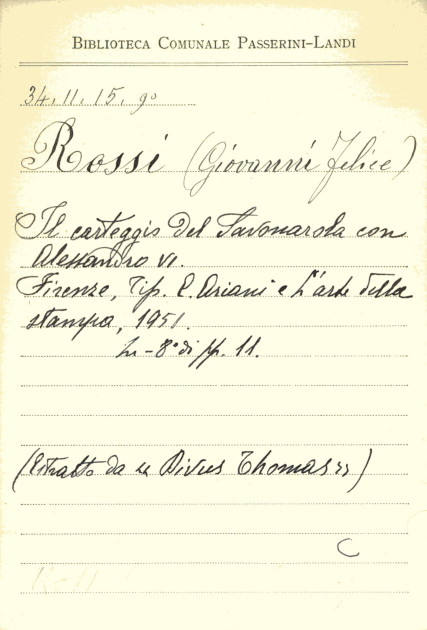 BIBLIOTECA COMUNALE PASSERINI-LANDI
34.11.15.9º
Rossi (Giovanni Felice)
Il carteggio del Savonarola con
Alessandro VI.
Firenze, Tip. E. Ariani e L'arte della
stampa, 1951.
In-8° di pp. 11.
(Estratto da "Divus Thomas")
C